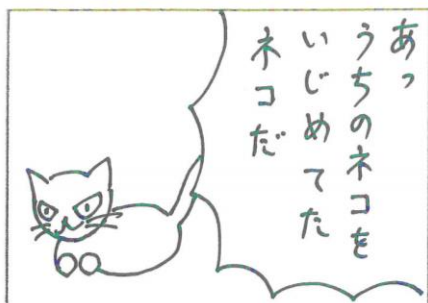 あっ
うちのネコを
いじめてた
ネコだ